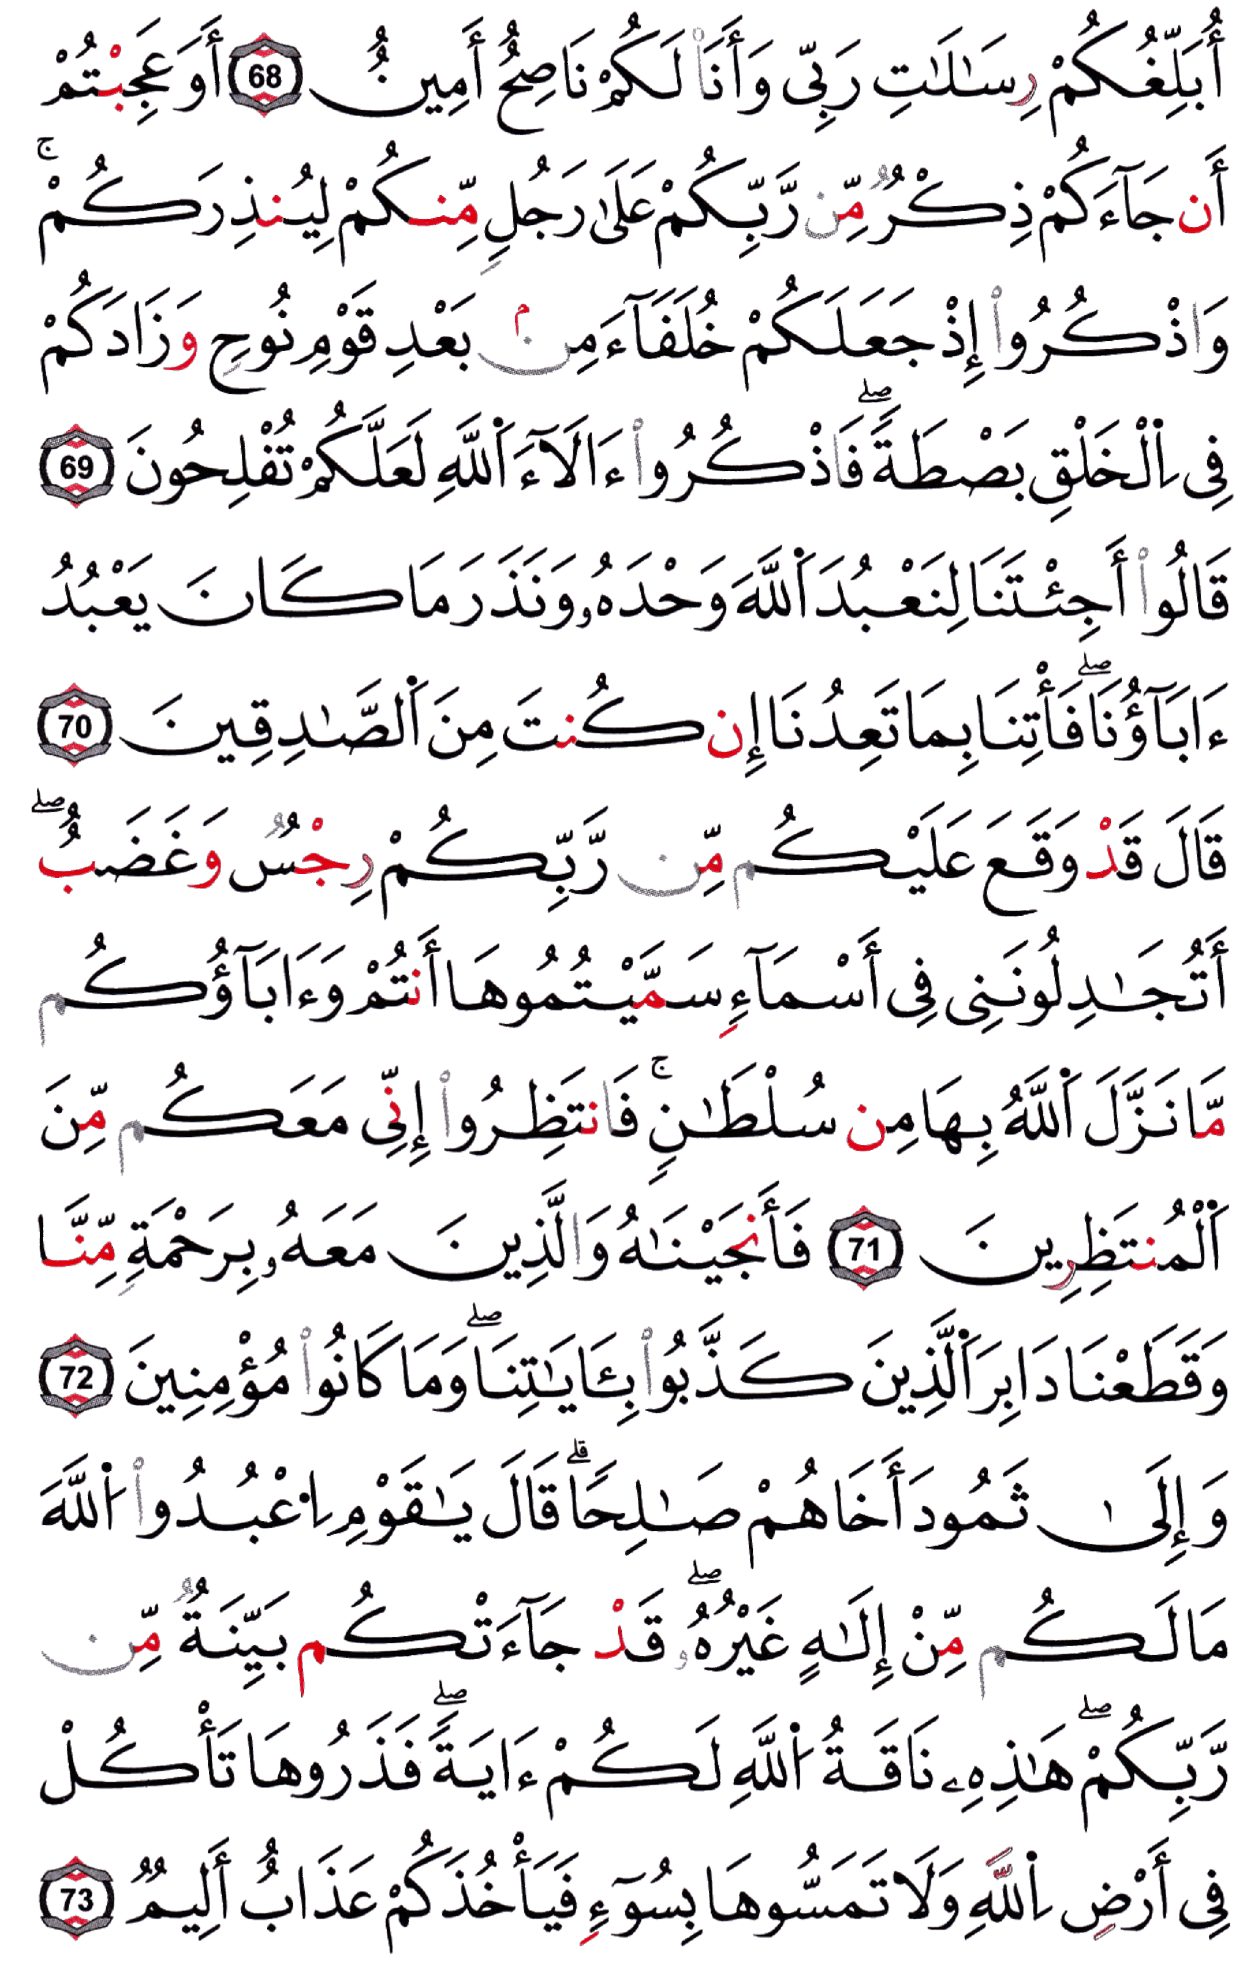 أُبَلِّغُكُمْ رِسَٰلَٰتِ رَبِّى وَأَنَا۠ لَكُمْ نَاصِحٌ أَمِينٌ 68 أَوَعَجِبْتُمْ
أَن جَآءَكُمْ ذِكْرٌ مِّن رَّبِّكُمْ عَلَىٰ رَجُلٍ مِّنكُمْ لِيُنذِرَكُمْ ۚ
وَاذْكُرُوا۟ إِذْ جَعَلَكُمْ خُلَفَآءَ مِنۢ بَعْدِ قَوْمِ نُوحٍ وَزَادَكُمْ
فِى اِ۬لْخَلْقِ بَصْطَةً ۖ فَاذْكُرُوا۟ ءَالَآءَ اَ۬للَّهِ لَعَلَّكُمْ تُفْلِحُونَ 69
قَالُوا۟ أَجِئْتَنَا لِنَعْبُدَ اَ۬للَّهَ وَحْدَهُۥ وَنَذَرَ مَا كَانَ يَعْبُدُ
ءَابَآؤُنَا ۖ فَأْتِنَا بِمَا تَعِدُنَا إِن كُنتَ مِنَ اَ۬لصَّٰدِقِينَ 70
قَالَ قَدْ وَقَعَ عَلَيْكُم مِّن رَّبِّكُمْ رِجْسٌ وَغَضَبٌ ۖ
أَتُجَٰدِلُونَنِى فِى أَسْمَآءٍ سَمَّيْتُمُوهَا أَنتُمْ وَءَابَآؤُكُم
مَّا نَزَّلَ اَ۬للَّهُ بِهَا مِن سُلْطَٰنٍ ۚ فَانتَظِرُوا۟ إِنِّى مَعَكُم مِّنَ
اَ۬لْمُنتَظِرِينَ 71 فَأَنجَيْنَٰهُ وَالَّذِينَ مَعَهُۥ بِرَحْمَةٍ مِّنَّا
وَقَطَعْنَا دَابِرَ اَ۬لَّذِينَ كَذَّبُوا۟ بِـَٔايَٰتِنَا ۖ وَمَا كَانُوا۟ مُؤْمِنِينَ 72
وَإِلَىٰ ثَمُودَ أَخَاهُمْ صَٰلِحًا ۗ قَالَ يَٰقَوْمِ اِ۟عْبُدُوا۟ اُ۬للَّهَ
مَا لَكُم مِّنْ إِلَٰهٍ غَيْرُهُۥ ۖ قَدْ جَآءَتْكُم بَيِّنَةٌ مِّن
رَّبِّكُمْ ۖ هَٰذِهِۦ نَاقَةُ اُ۬للَّهِ لَكُمْ ءَايَةً ۖ فَذَرُوهَا تَأْكُلْ
فِى أَرْضِ اِ۬للَّهِ وَلَا تَمَسُّوهَا بِسُوٓءٍ فَيَأْخُذَكُمْ عَذَابٌ أَلِيمٌ 73